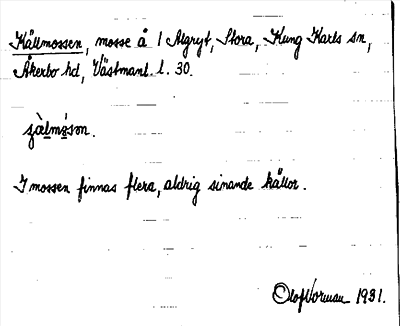 Källmossen, mosse å 1 Algryt, Stora, Kung Karls sn,
Åkerbo hd, Västmanl. l. 30.
I mossen finnas flera, aldrig sinande källor.
Olof Vorman 1931.